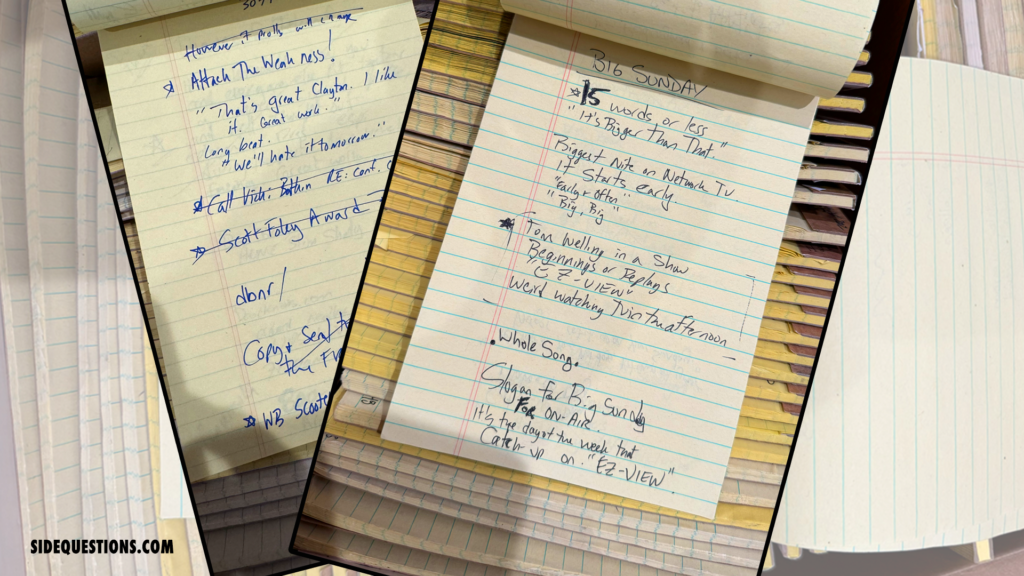 However it
Attack The Weakness!
"That's great Clayton. I like
it. Great work."
Long beat.
"We'll hate it tomorrow."
Call Vicki: RE: Cont.
Scott Foley Award
dbnr/
Copy & Send
the
WB Scoote
BIG SUNDAY
15 words or less
"It's Bigger Than That."
Biggest Nite on Network TV.
It Starts early
"Early & Often"
"Big, Big"
Tom Welling in a Show
Beginnings or Replays
"EZ-VIEW"
Weird watching TV in the afternoon
Whole Song.
Slogan for Big Sunday
FOR ON-AIR
It's the day of the week that
Catch-up on "EZ-VIEW"
SIDEQUESTIONS.COM